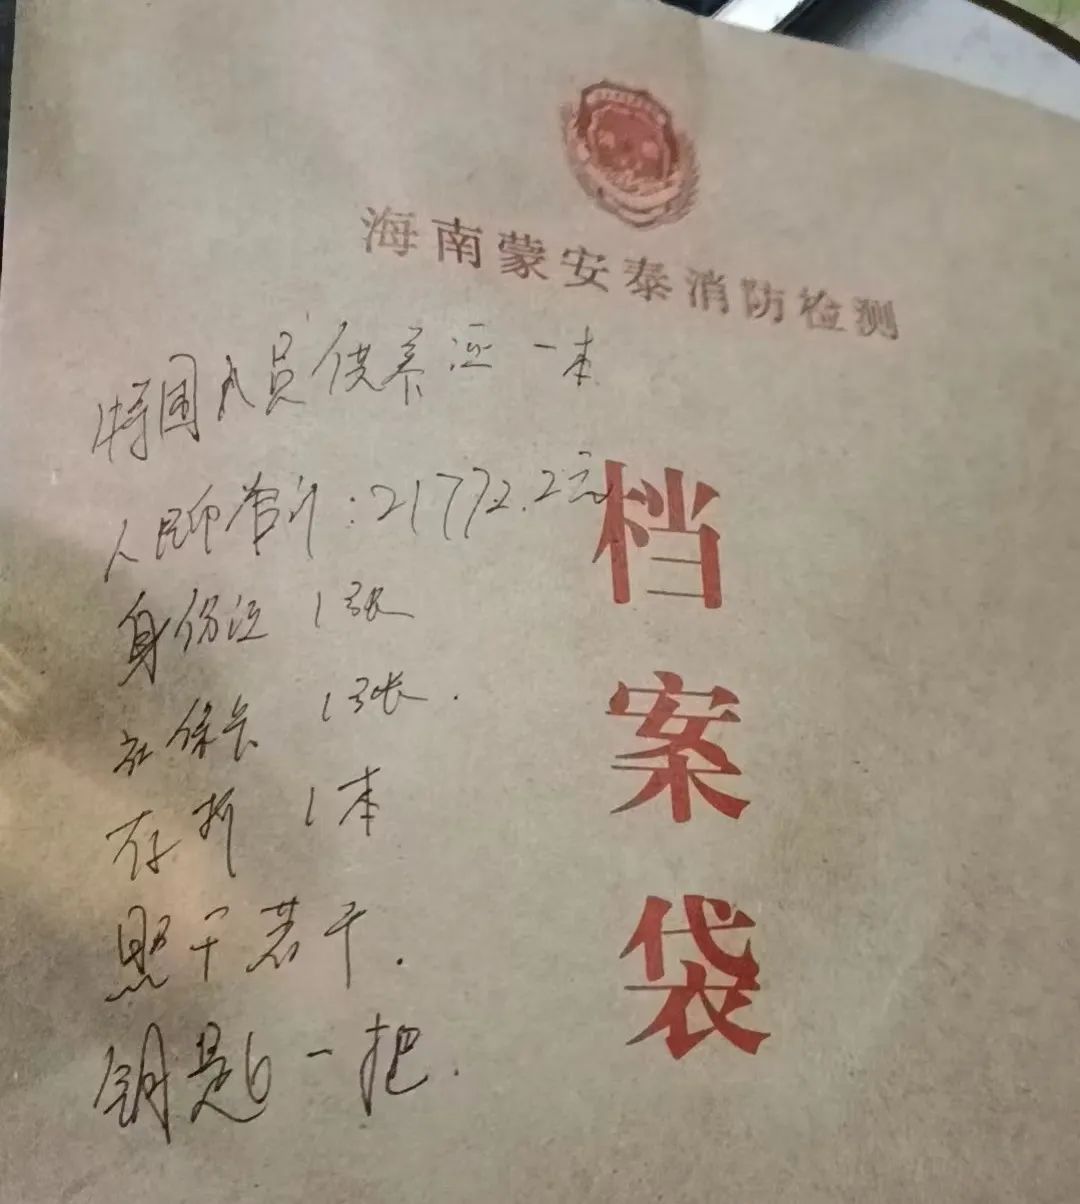 海南蒙安泰消防检测
特困人员供养证 一本
人民币合计：21772.2元
身份证 1张
社保卡 1张.
存折 1本
照干若干.
钥匙一把.
档
案
袋